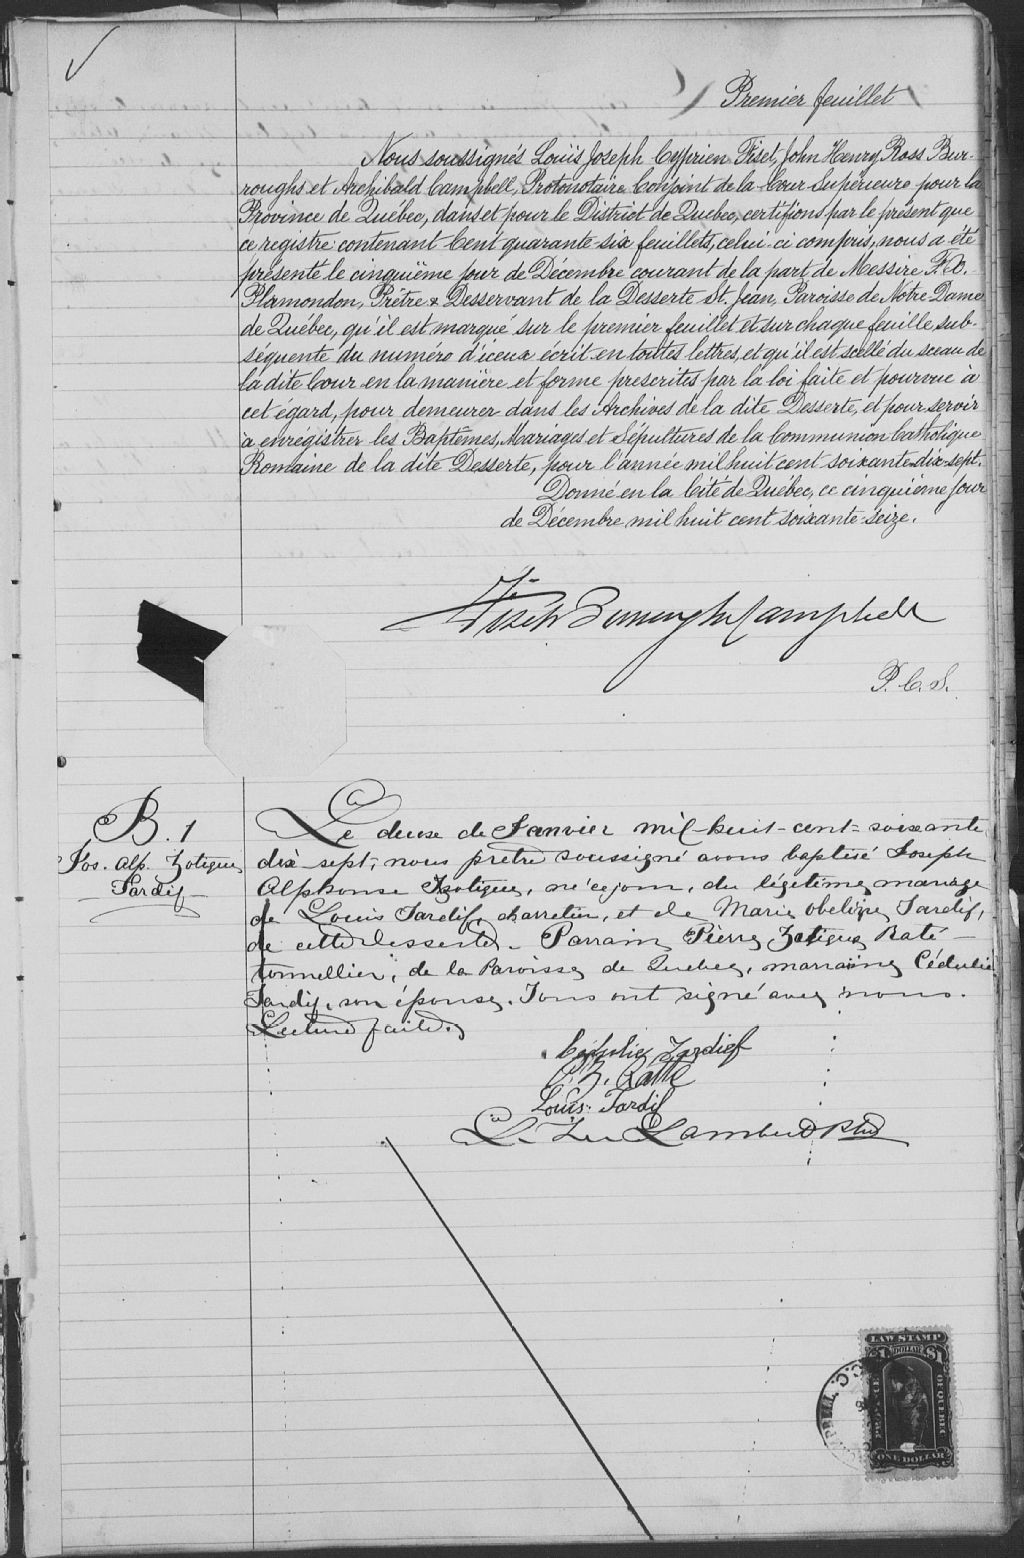 Premier feuillet
Nous soussignés Louis Joseph Cyprien Fiset, John Henry Ross Bur-
roughs et Archibald Campbell, Protonotaire Conjoint de la Cour Supérieure pour la
Province de Québec, dans et pour le District de Quebec, certifions par le présent que
ce registre contenant Cent quarante six feuillets, celui-ci compris, nous a été
présenté le cinquième jour de Décembre courant de la part de Messire F. X.
Plamondon, Prêtre & Desservant de la Desserte St. Jean, Paroisse de Notre Dame
de Québec, qu'il est marqué sur le premier feuillet et sur chaque feuille sub-
séquente du numéro d'iceux écrit en toutes lettres, et qu'il est scellé du sceau de
la dite Cour en la manière et forme prescrites par la loi faite et pourvue à
cet égard, pour demeurer dans les Archives de la dite Desserte, et pour servir
à enrégistrer les Baptêmes, Mariages et Sépultures de la Communion Catholique
Romaine de la dite Desserte, pour l'année mil huit cent soixante-dix-sept.
Donné en la Cité de Québec, ce cinquième jour
de Décembre mil huit cent soixante-seize.
Fiset Burroughs Campbell
P. C. S.
B. 1
Jos. Alp. Zotique
Tardif
Le deuse de Janvier mil-huit-cent-soixante
dix sept, nous prêtre soussigné avons baptisé Joseph
Alphonse Zotique, né ce jour, du légitime mariage
de Louis Tardif, charretier, et de Marie Obeline Tardif,
de cette desserte. Parrain Pierre Zotique Raté
tonnellier, de la Paroisse de Quebec, marraine Cédulie
Tardif, son épouse. Tous ont signé avec nous.
Lecture faite.
Cédulie Tardief
P. Z. Ratté
Louis Tardif
Lambert Ptre
LAW STAMP
$1 DOLLAR $1
PROVINCE OF QUEBEC
ONE DOLLAR